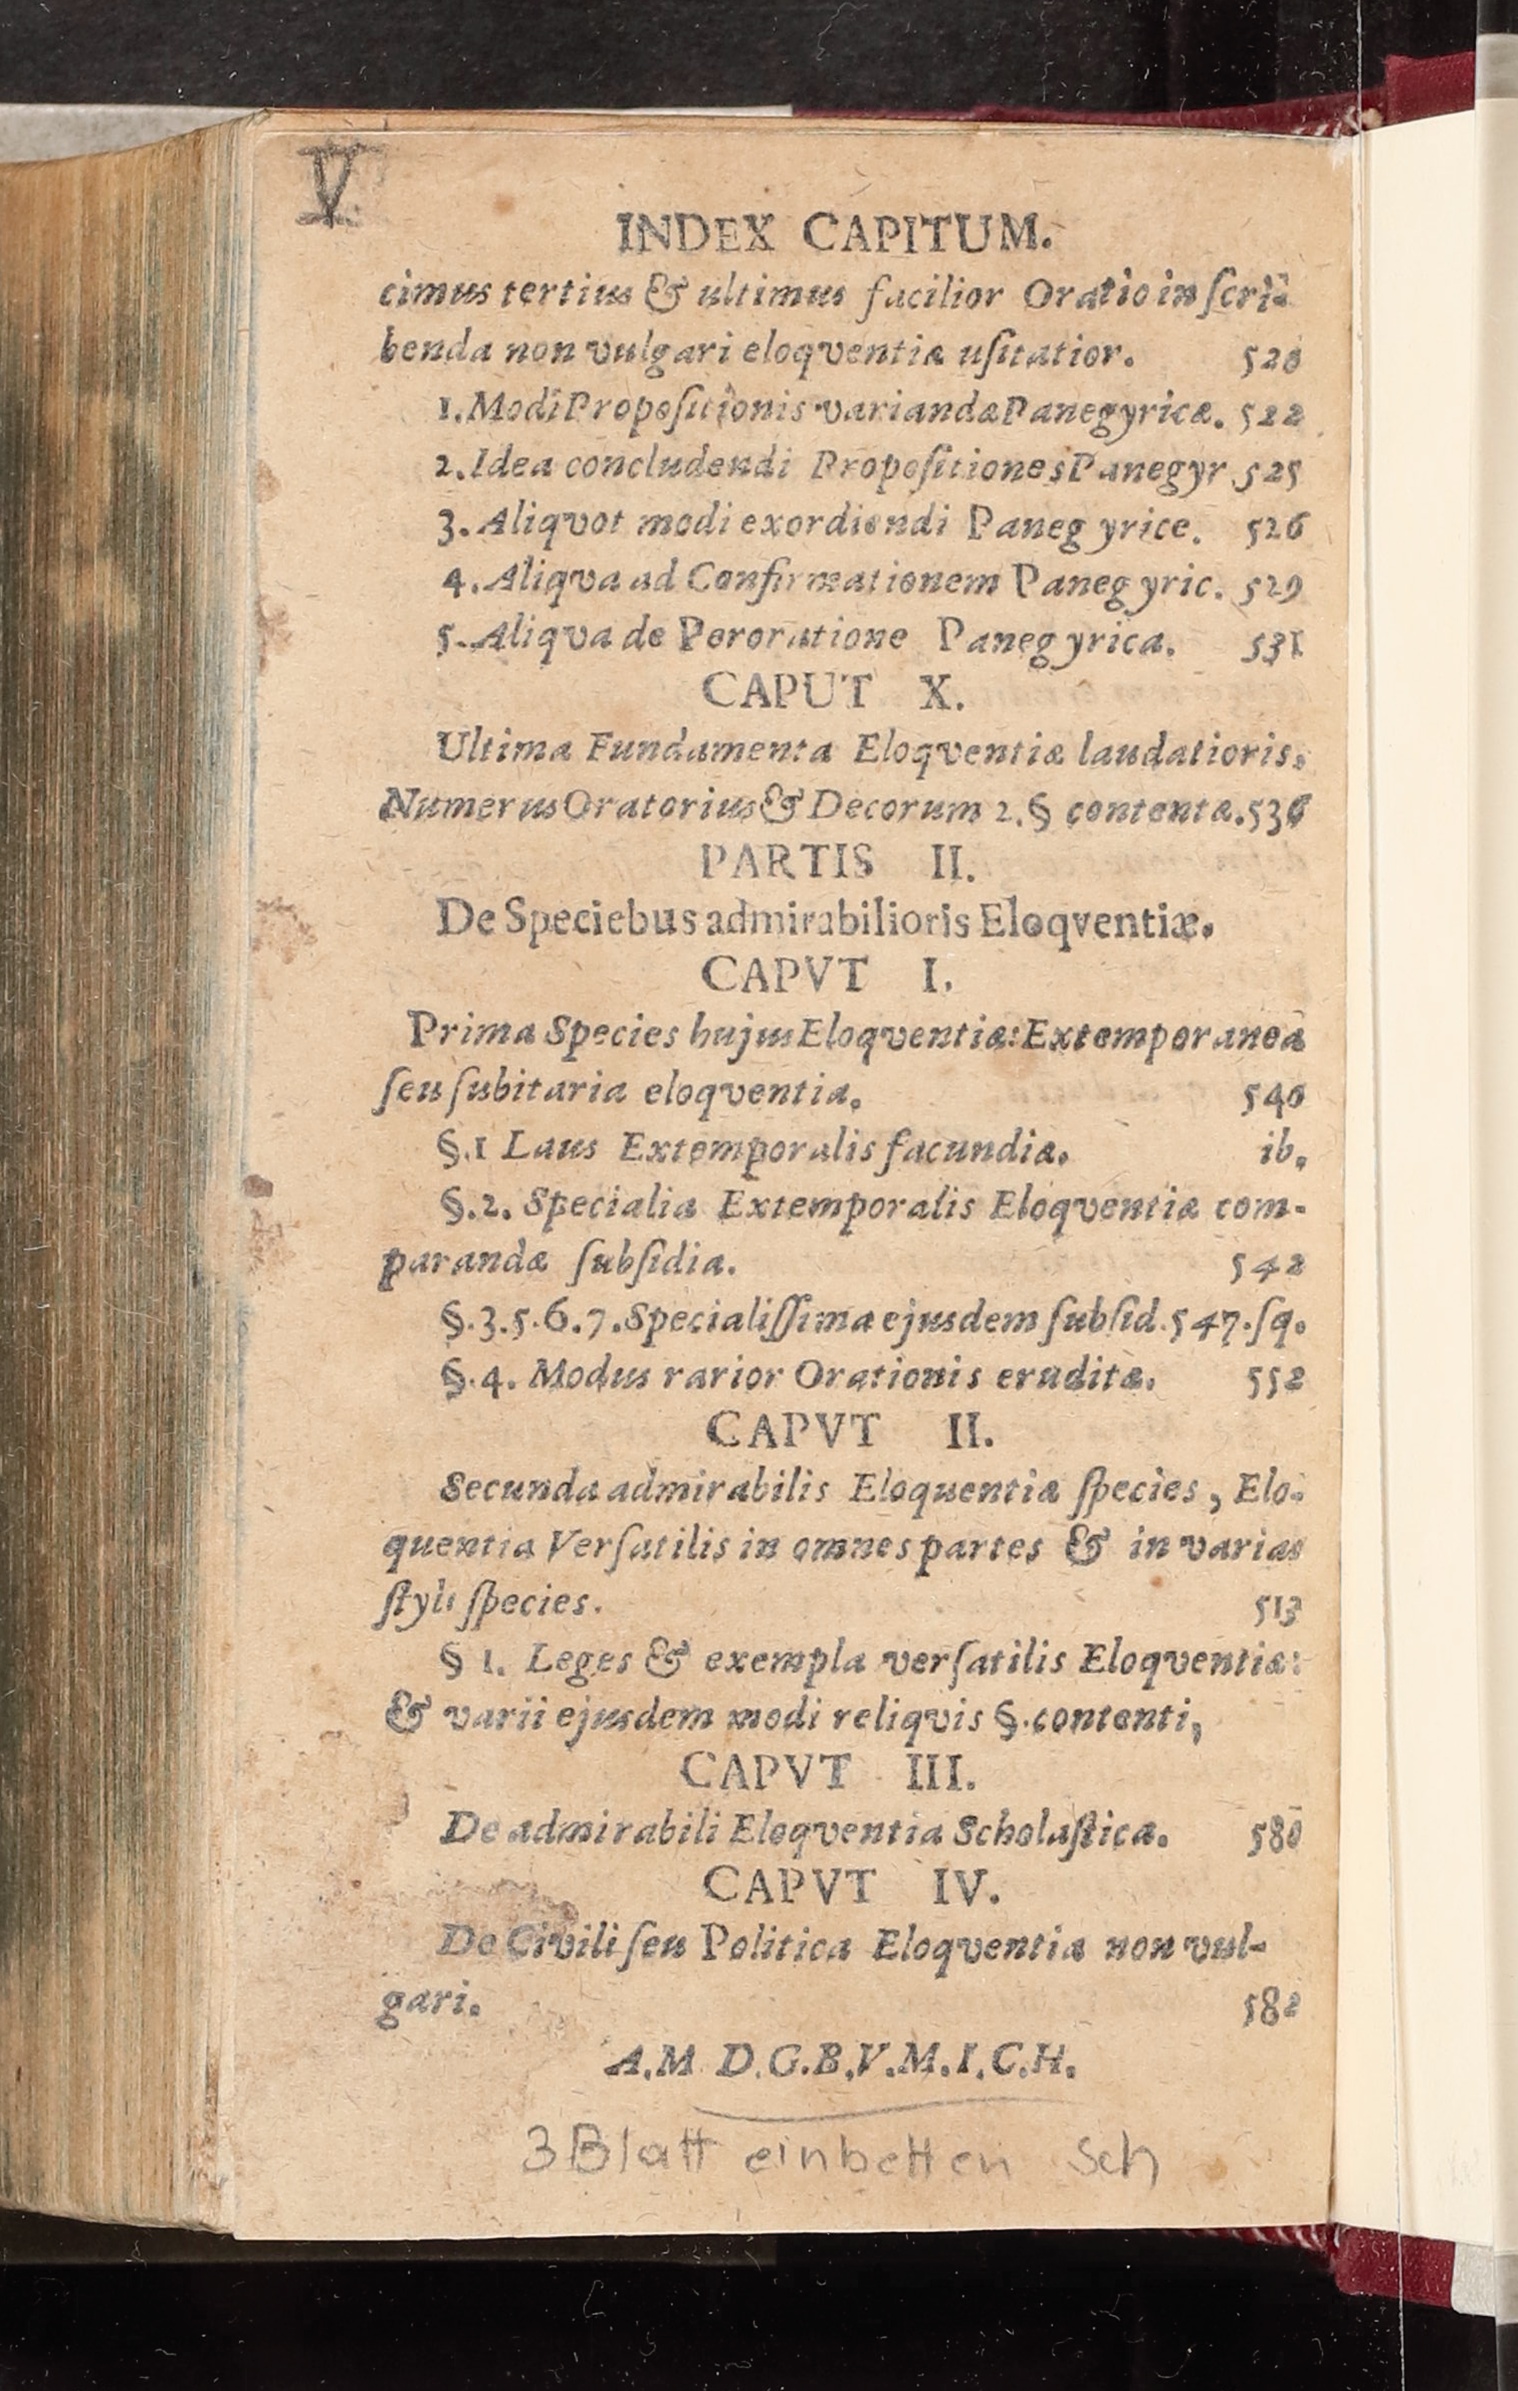 V
INDEX CAPITUM.
cimus tertius & ultimus facilior Oratio in ſcri-
benda non vulgari eloqventiæ uſitatior. 520
1. Modi Propoſitionis variandæ Panegyricæ. 522
2. Idea concludendi Propoſitiones Panegyr 525
3. Aliqvot modi exordiendi Panegyrice. 526
4. Aliqva ad Confirmationem Panegyric. 529
5. Aliqva de Peroratione Panegyrica. 531
CAPUT X.
Ultima Fundamenta Eloqventiæ laudatioris.
Numerus Oratorius & Decorum 2. § contenta. 536
PARTIS II.
De Speciebus admirabilioris Eloqventiæ.
CAPVT I.
Prima Species hujus Eloqventiæ: Extemporanea
ſeu ſubitaria eloqventia. 540
§.1 Laus Extemporalis facundiæ. ib.
§.2. Specialia Extemporalis Eloqventiæ com-
parandæ ſubſidia. 542
§.3.5.6.7. Specialiſſima ejusdem ſubſid. 547. ſq.
§.4. Modus rarior Orationis eruditæ. 552
CAPVT II.
Secunda admirabilis Eloquentiæ ſpecies, Elo-
quentia Verſatilis in omnes partes & in varias
ſtyli ſpecies. 513
§ 1. Leges & exempla verſatilis Eloqventiæ:
& varii ejusdem modi reliqvis §. contenti,
CAPVT III.
De admirabili Eloqventia Scholaſtica. 580
CAPVT IV.
De Civili ſeu Politica Eloqventia non vul-
gari. 582
A.M D.G.B.V.M.I.C.H.
3 Blatt einbetten Sch